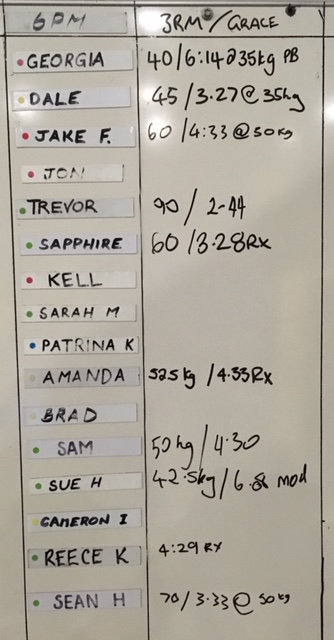 6PM 3RM / GRACE
GEORGIA 40/6:14@35kg PB
DALE 45/3.27@35kg
JAKE F. 60/4:33@50kg
JON
TREVOR 90/2-44
SAPPHIRE 60/3.28Rx
KELL
SARAH M
PATRINA K
AMANDA 52.5kg/4.33Rx
BRAD
SAM 50kg/4:30
SUE H 42.5kg/ mod
CAMERON I
REECE K 4:29 RX
SEAN H 70/3.33@50kg